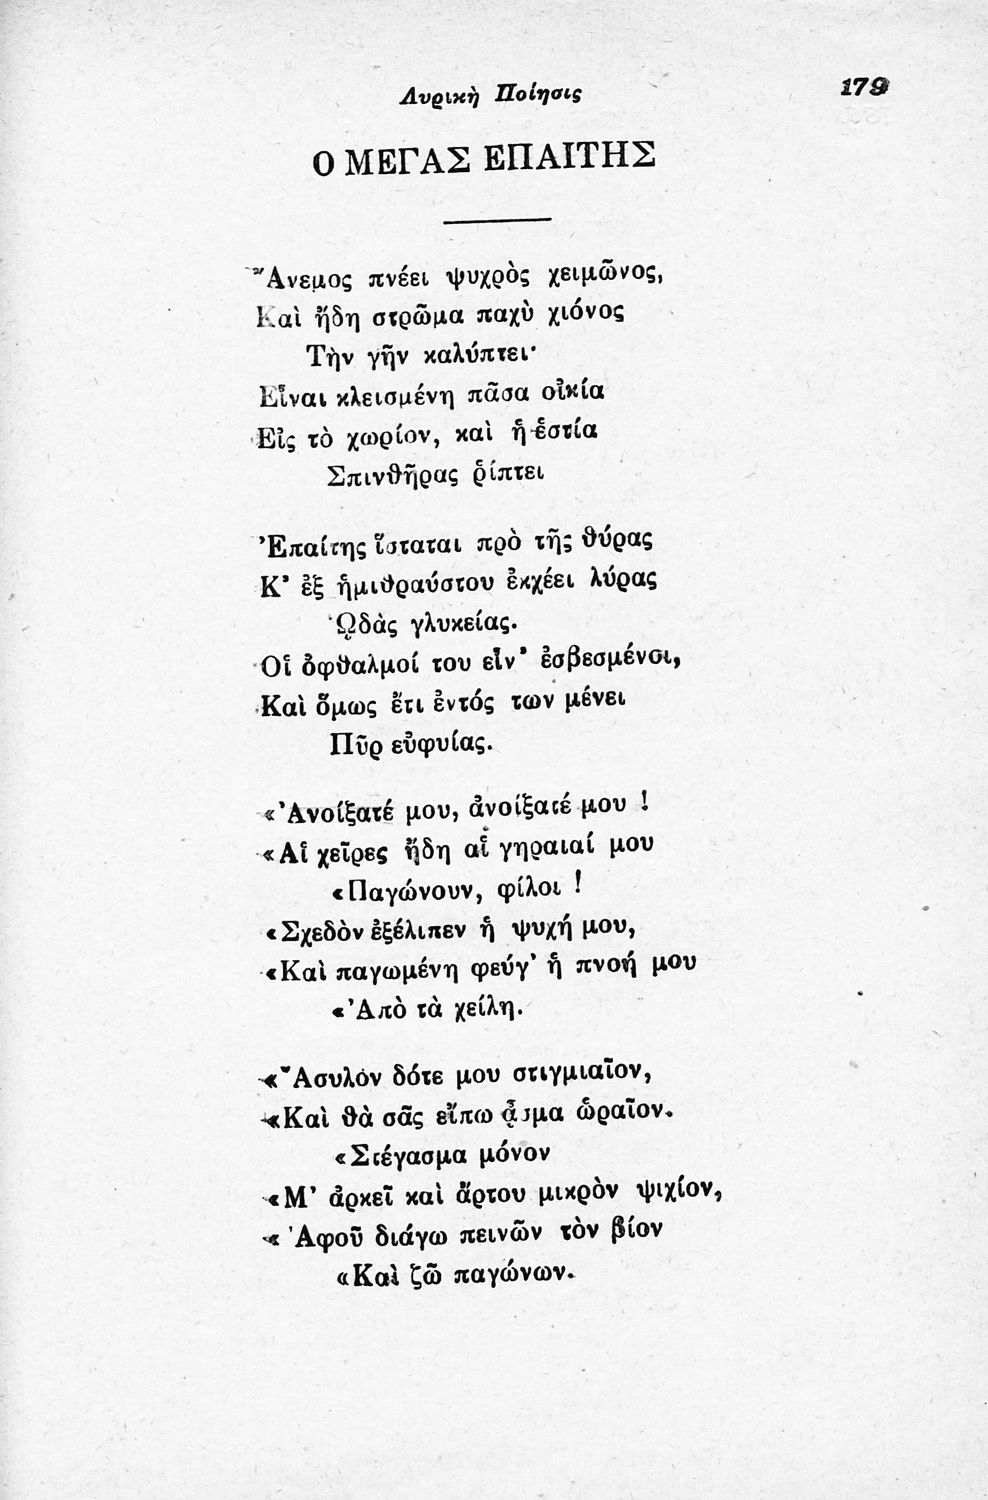 Λυρικὴ Ποίησις 179
Ο ΜΕΓΑΣ ΕΠΑΙΤΗΣ
Ἄνεμος πνέει ψυχρὸς χειμῶνος,
Καὶ ἤδη στρῶμα παχὺ χιόνος
Τὴν γῆν καλύπτει·
Εἶναι κλεισμένη πᾶσα οἰκία
Εἰς τὸ χωρίον, καὶ ἡ ἑστία
Σπινθῆρας ῥίπτει
Ἐπαίτης ἵσταται πρὸ τῆς θύρας
Κ’ ἐξ ἡμιθραύστου ἐκχέει λύρας
ᾨδὰς γλυκείας.
Οἱ ὀφθαλμοί του εἶν’ ἐσβεσμένοι,
Καὶ ὅμως ἔτι ἐντός των μένει
Πῦρ εὐφυίας.
«Ἀνοίξατέ μου, ἀνοίξατέ μου !
«Αἱ χεῖρες ἤδη αἱ γηραιαί μου
«Παγώνουν, φίλοι !
«Σχεδὸν ἐξέλιπεν ἡ ψυχή μου,
«Καὶ παγωμένη φεύγ’ ἡ πνοή μου
«Ἀπὸ τὰ χείλη.
«Ἄσυλόν δότε μου στιγμιαῖον,
«Καὶ θὰ σᾶς εἴπω ᾆσμα ὡραῖον.
«Στέγασμα μόνον
«Μ’ ἀρκεῖ καὶ ἄρτου μικρὸν ψιχίον,
«Ἀφοῦ διάγω πεινῶν τὸν βίον
«Καὶ ζῶ παγώνων.